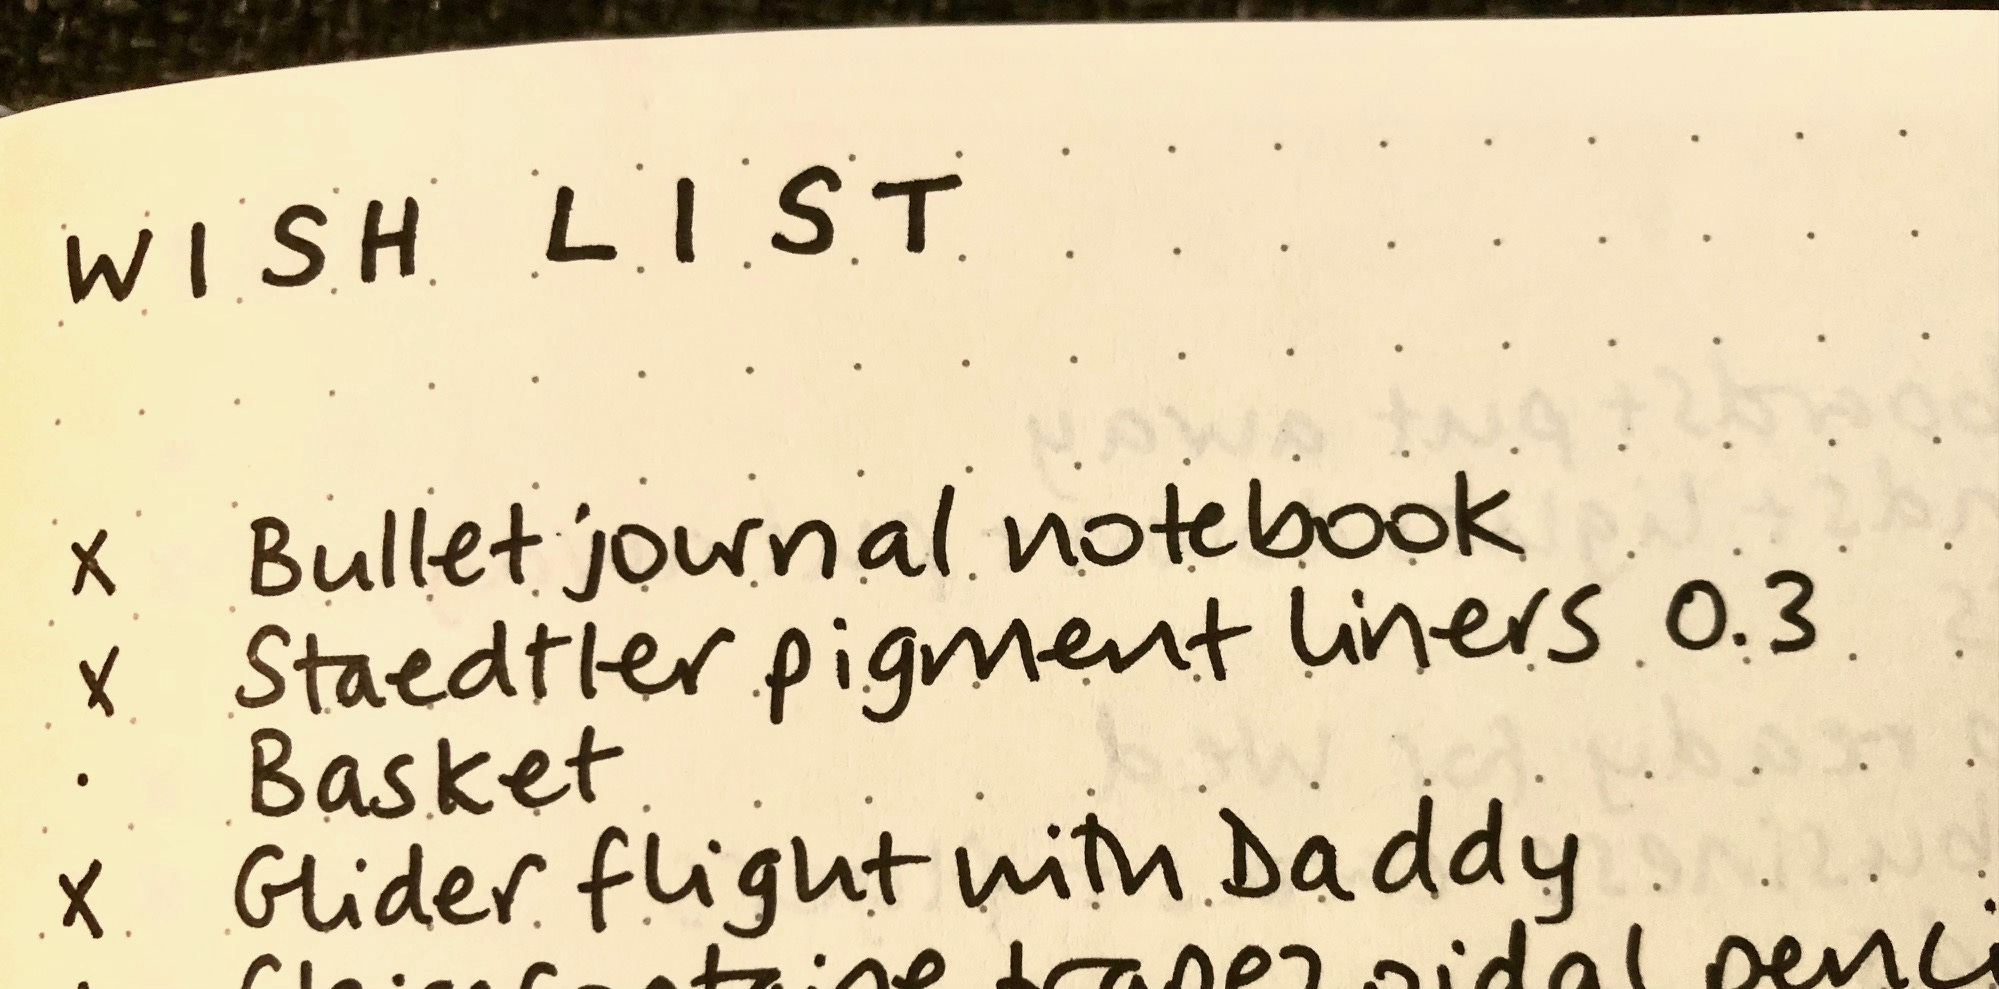 WISH LIST
x Bullet journal notebook
x Staedtler pigment liners 0.3
· Basket
x Glider flight with Daddy
· Clairefontaine trapezoidal penci